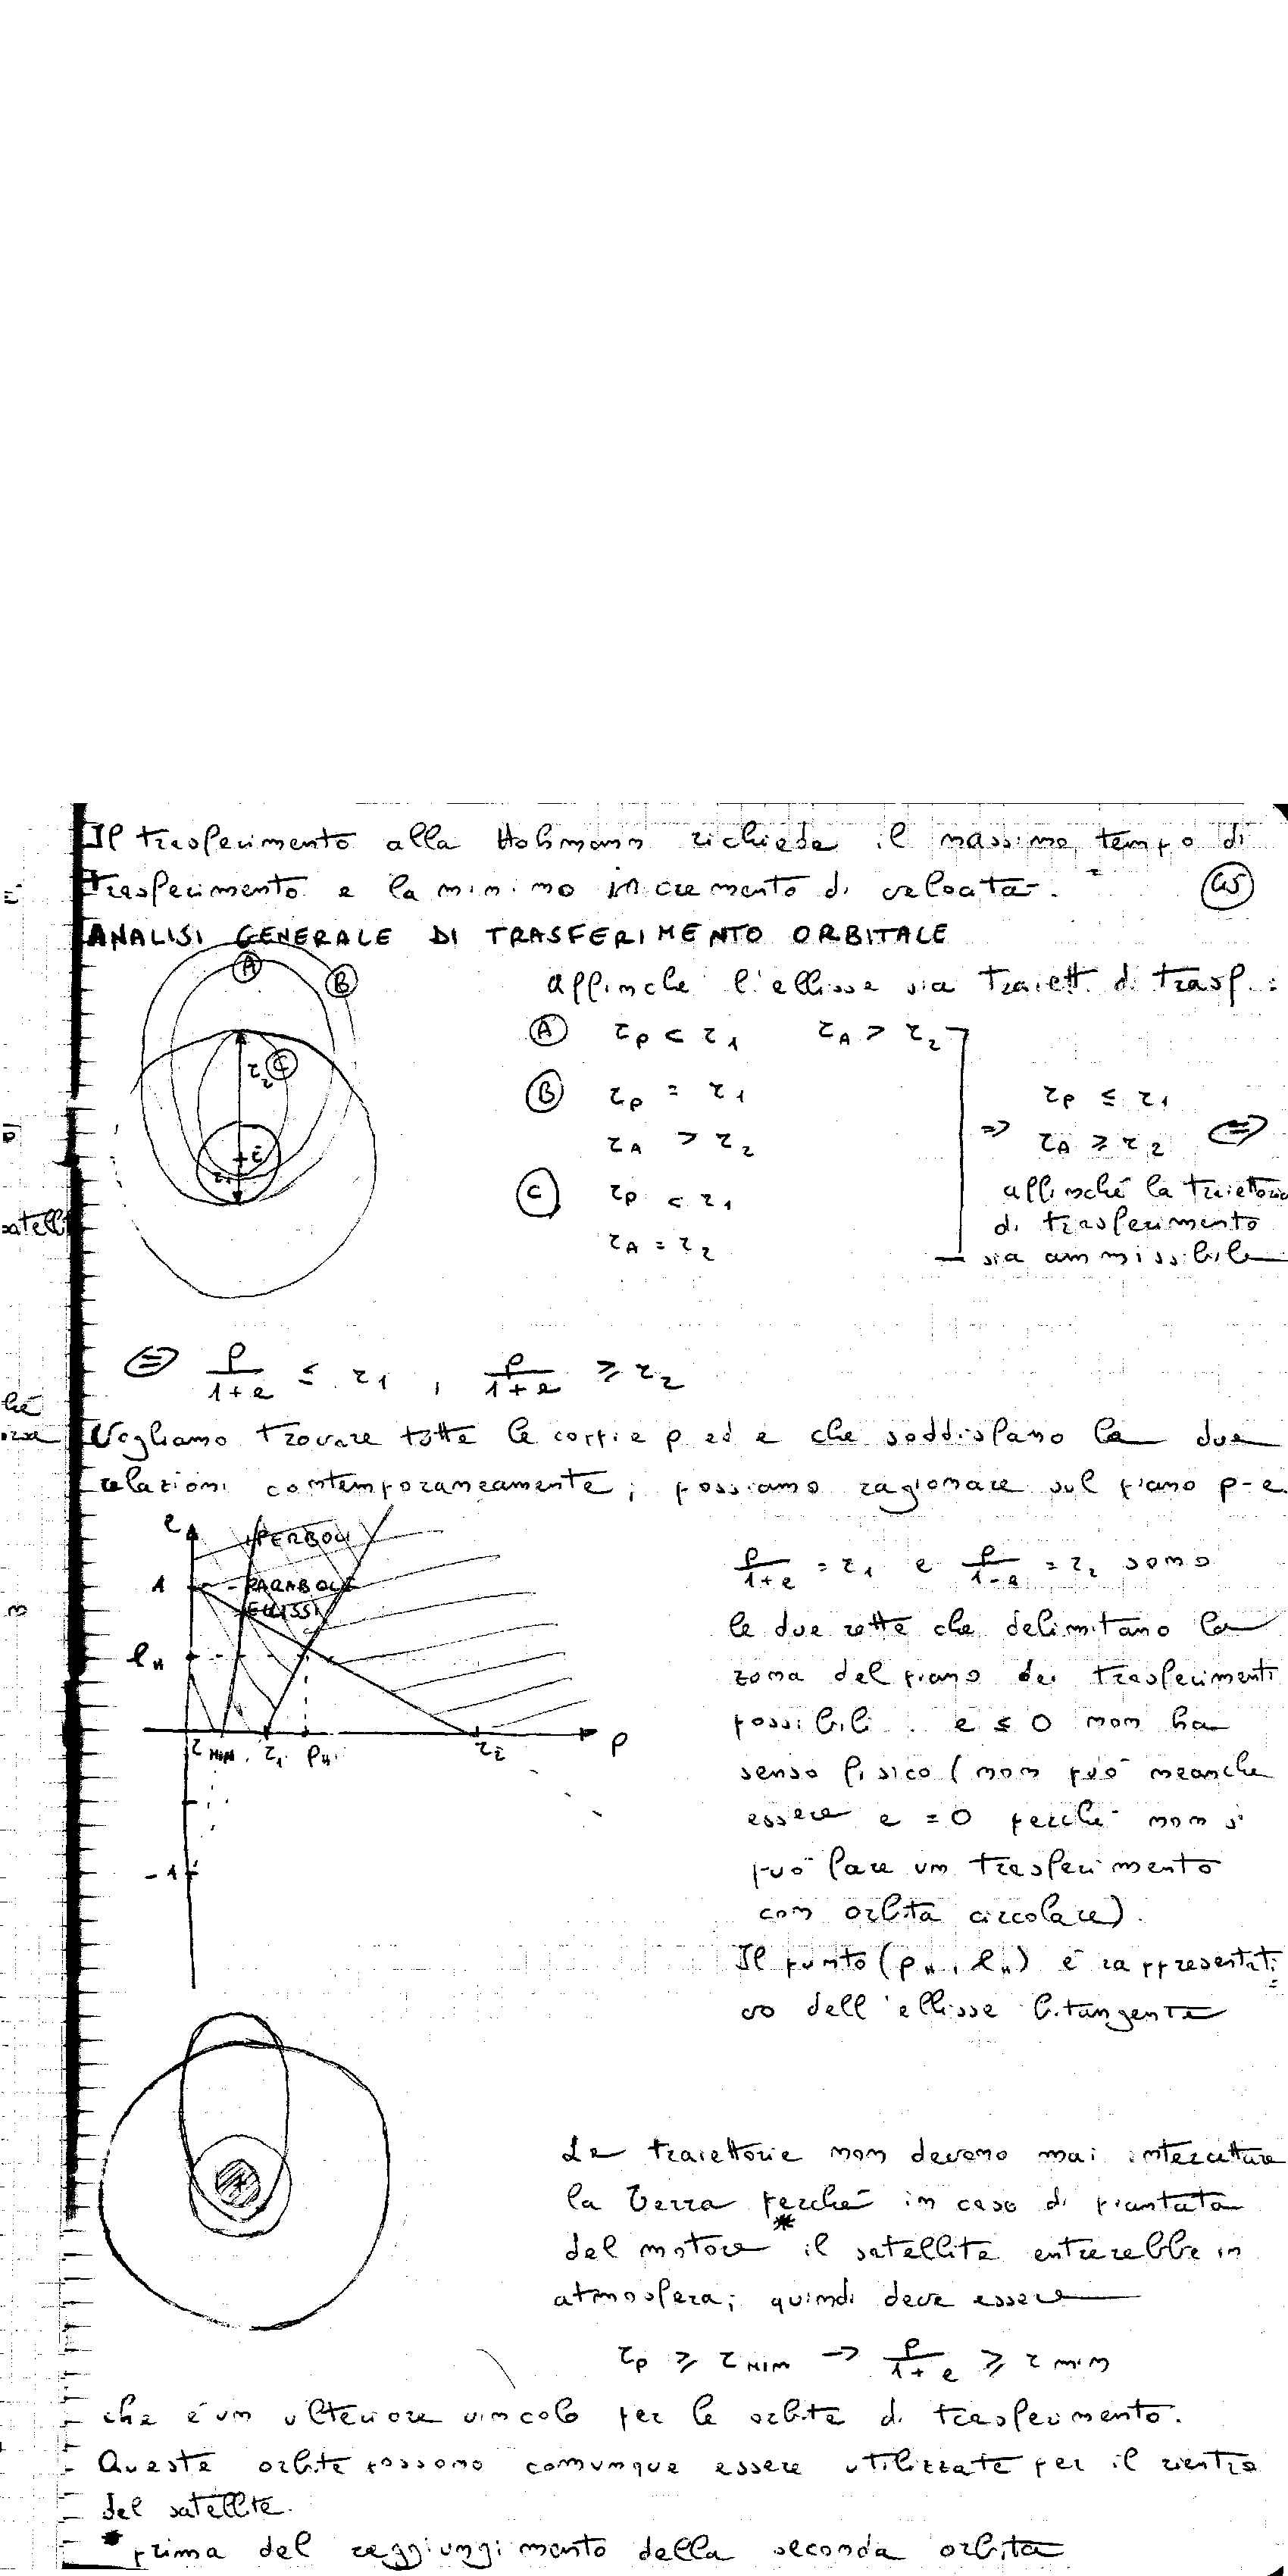 Il trasferimento alla Hohmann richiede il massimo tempo di
trasferimento e la minimo incremento di velocità.
45
ANALISI GENERALE DI TRASFERIMENTO ORBITALE
A
B
C
r2
r1
Affinché l'ellisse sia traiett. di trasf.:
A rp < r1 rA > r2
B rp = r1
rA > r2
C rp < r1
rA = r2
⇒ rp ≤ r1
rA ≥ r2 ⇔
affinché la traiettoria
di trasferimento
sia ammissibile
⇔ p/(1+e) ≤ r1 , p/(1+e) ≥ r2
Vogliamo trovare tutte le coppie p ed e che soddisfano le due
relazioni contemporaneamente; possiamo ragionare sul piano p-e.
e
IPERBOLI
1
PARABOLE
ELLISSI
eH
rMIN r1 pH r2 p
-1
p/(1+e) = r1 e p/(1-e) = r2 sono
le due rette che delimitano la
zona del piano dei trasferimenti
possibili. e ≤ 0 non ha
senso fisico (non può neanche
essere e = 0 perché non si
può fare un trasferimento
con orbita circolare).
Il punto (pH, eH) è rappresentati
vo dell'ellisse bitangente
Le traiettorie non devono mai intercettare
la Terra perché* in caso di piantata
del motore il satellite entrerebbe in
atmosfera; quindi deve essere
rp ≥ rMIN → p/(1+e) ≥ rmin
che è un ulteriore vincolo per le orbite di trasferimento.
Queste orbite possono comunque essere utilizzate per il rientro
del satellite.
* prima del raggiungimento della seconda orbita